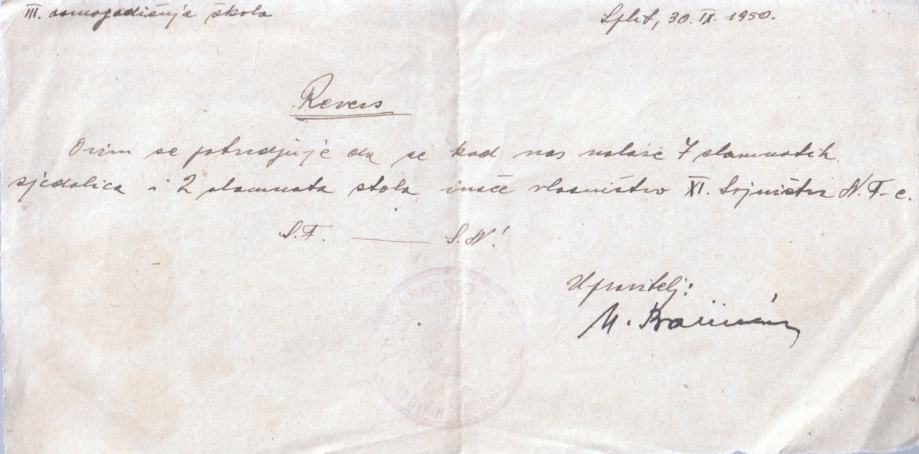 III. osmogodišnja škola
Split, 30. IX. 1950.
Revers
Ovim se potvrdjuje da se kod nas nalaze 7 slamnatih
sjedalica i 2 slamnata stola inače vlasništvo XI. N. F-e.
S. F. — S. N!
Upravitelj:
M.